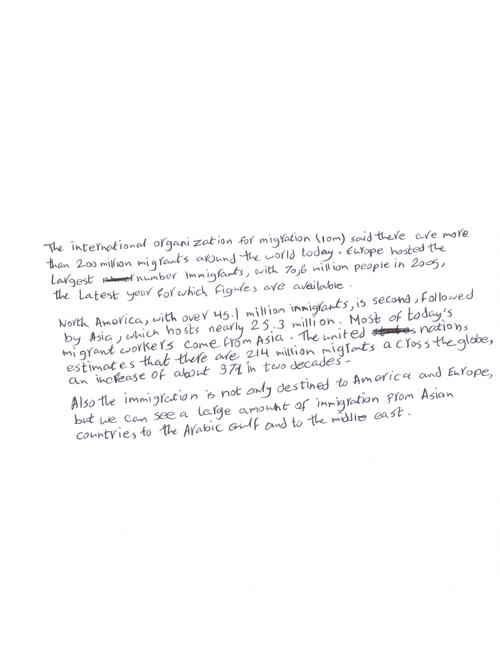 The international organization for migration (iom) said there are more
than 200 million migrants around the world today. Europe hosted the
Largest number immigrants, with 70,6 million people in 2005,
the Latest year for which figures are available.
North America, with over 45.1 million immigrants, is second, followed
by Asia, which hosts nearly 25.3 million. Most of today's
migrant workers come from Asia. The united nations
estimates that there are 214 million migrants across the globe,
an increase of about 37% in two decades.
Also the immigration is not only destined to America and Europe,
but we can see a large amount of immigration from Asian
countries to the Arabic Gulf and to the middle east.